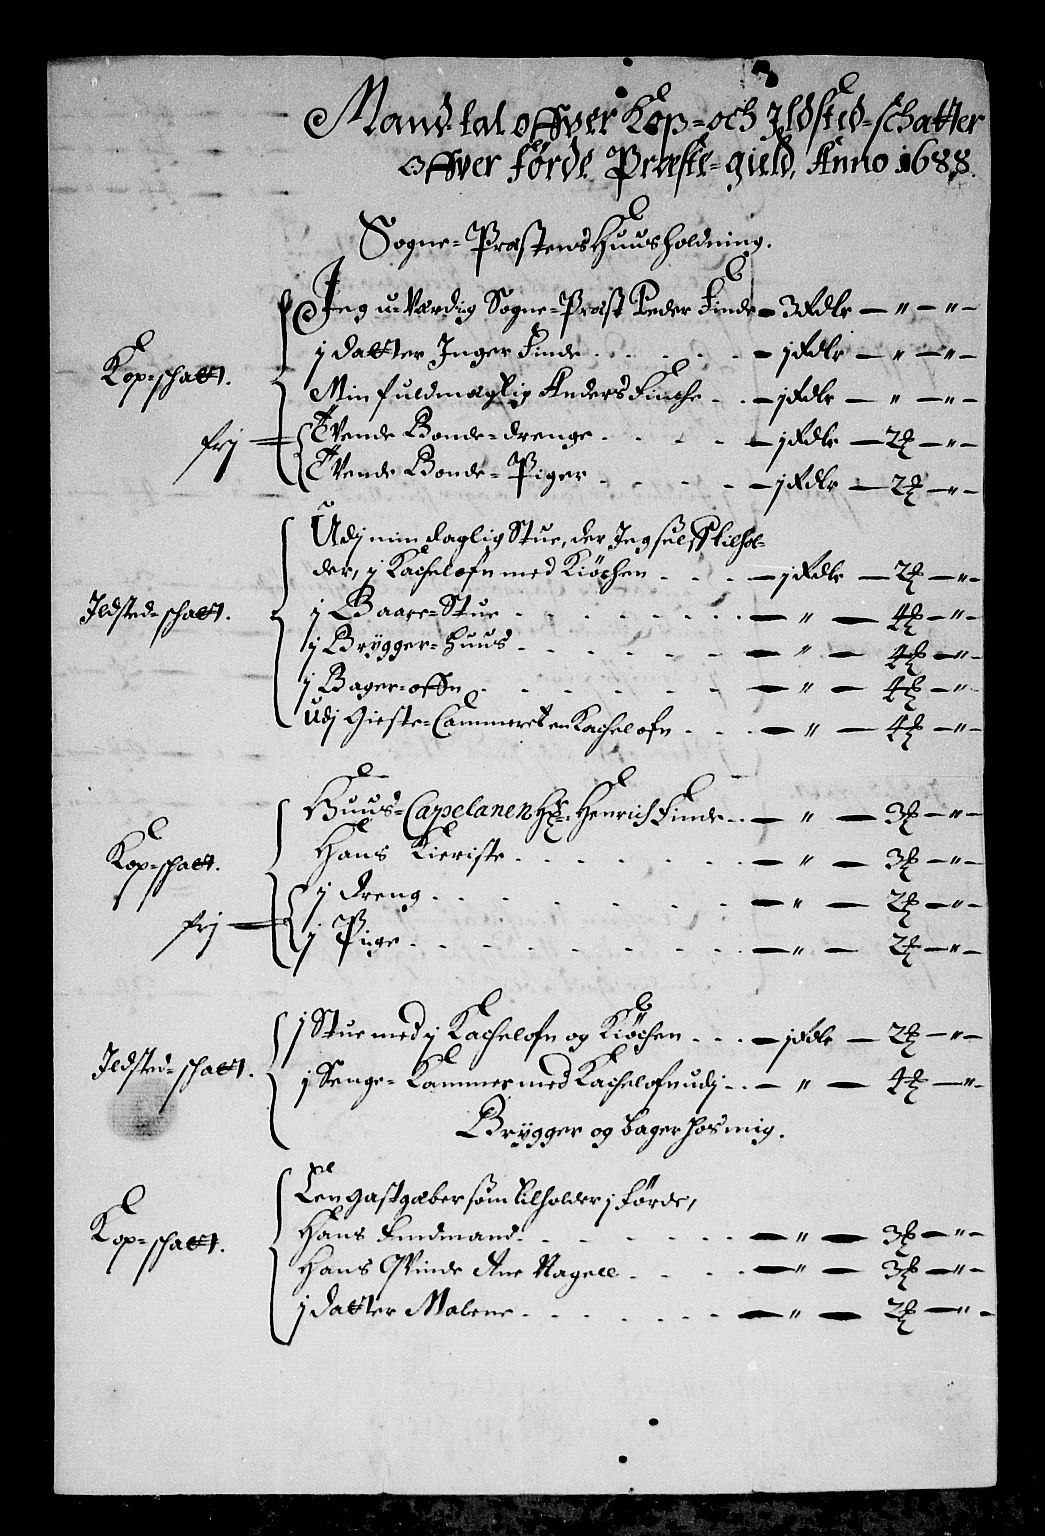 3
Mandtal offver Kop=och Ildsted=schatter
offver Førde Præste=gield, Anno 1688.
Sogne=Præstens Huusholdning.
Kop=schatt.
Jeg u-Værdig Sogne=Præst Peder Finde — 3 Rdlr — " — " —
j datter Inger Finde . . . — j Rdlr — " — " —
Min fuldmægtig Anders Finche . . — j Rdlr — " — " —
frj
Tvende Bonde=drenge . . . — j Rdlr — 2 — " —
Tvende Bonde=Piger . . . — j Rdlr — 2 — " —
Ildsted=schatt.
Udj min daglig Stue, der Jeg self tilhol-
der, j Kachelofn med Kiøchen . . . — j Rdlr — 2 — " —
j Baare=Stue . . . — " — 4 — " —
j Brygger=huus . . . — " — 4 — " —
j Bager=offn . . . — " — 4 — " —
Udj Gieste=Cammeret en Kachelofn . . . — " — 4 — " —
Kop=schatt.
Huus=Capelanen Hr. Henrich Finde . . — " — 3 — " —
Hans Kieriste . . . — " — 3 — " —
frj
j dreng . . . — " — 2 — " —
j Pige . . . — " — 2 — " —
Ildsted=schatt.
j Stue med j Kachelofn og Kiøchen . . . — j Rdlr — 2 — " —
j Senge=Kammer med Kachelofn udj . . — " — 4 — " —
Brygger og bager hos mig.
Kop=schatt.
Een Gastgæber som tilholder j Førde,
Hans Findmand . . . — " — 3 — " —
Hans Qvinde Ane Nagell . . . — " — 3 — " —
j datter Malene . . . — " — 2 — " —